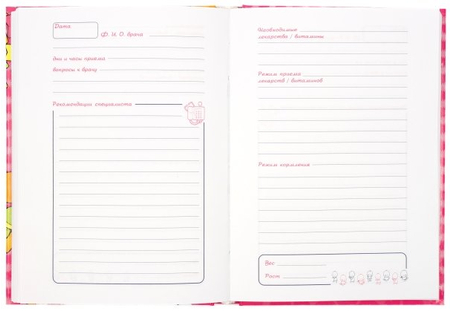 Дата
Ф. И. О. врача
Дни и часы приема
Вопросы к врачу
Рекомендации специалиста
Необходимые
лекарства / витамины
Режим приема
лекарств / витаминов
Режим кормления
Вес
Рост